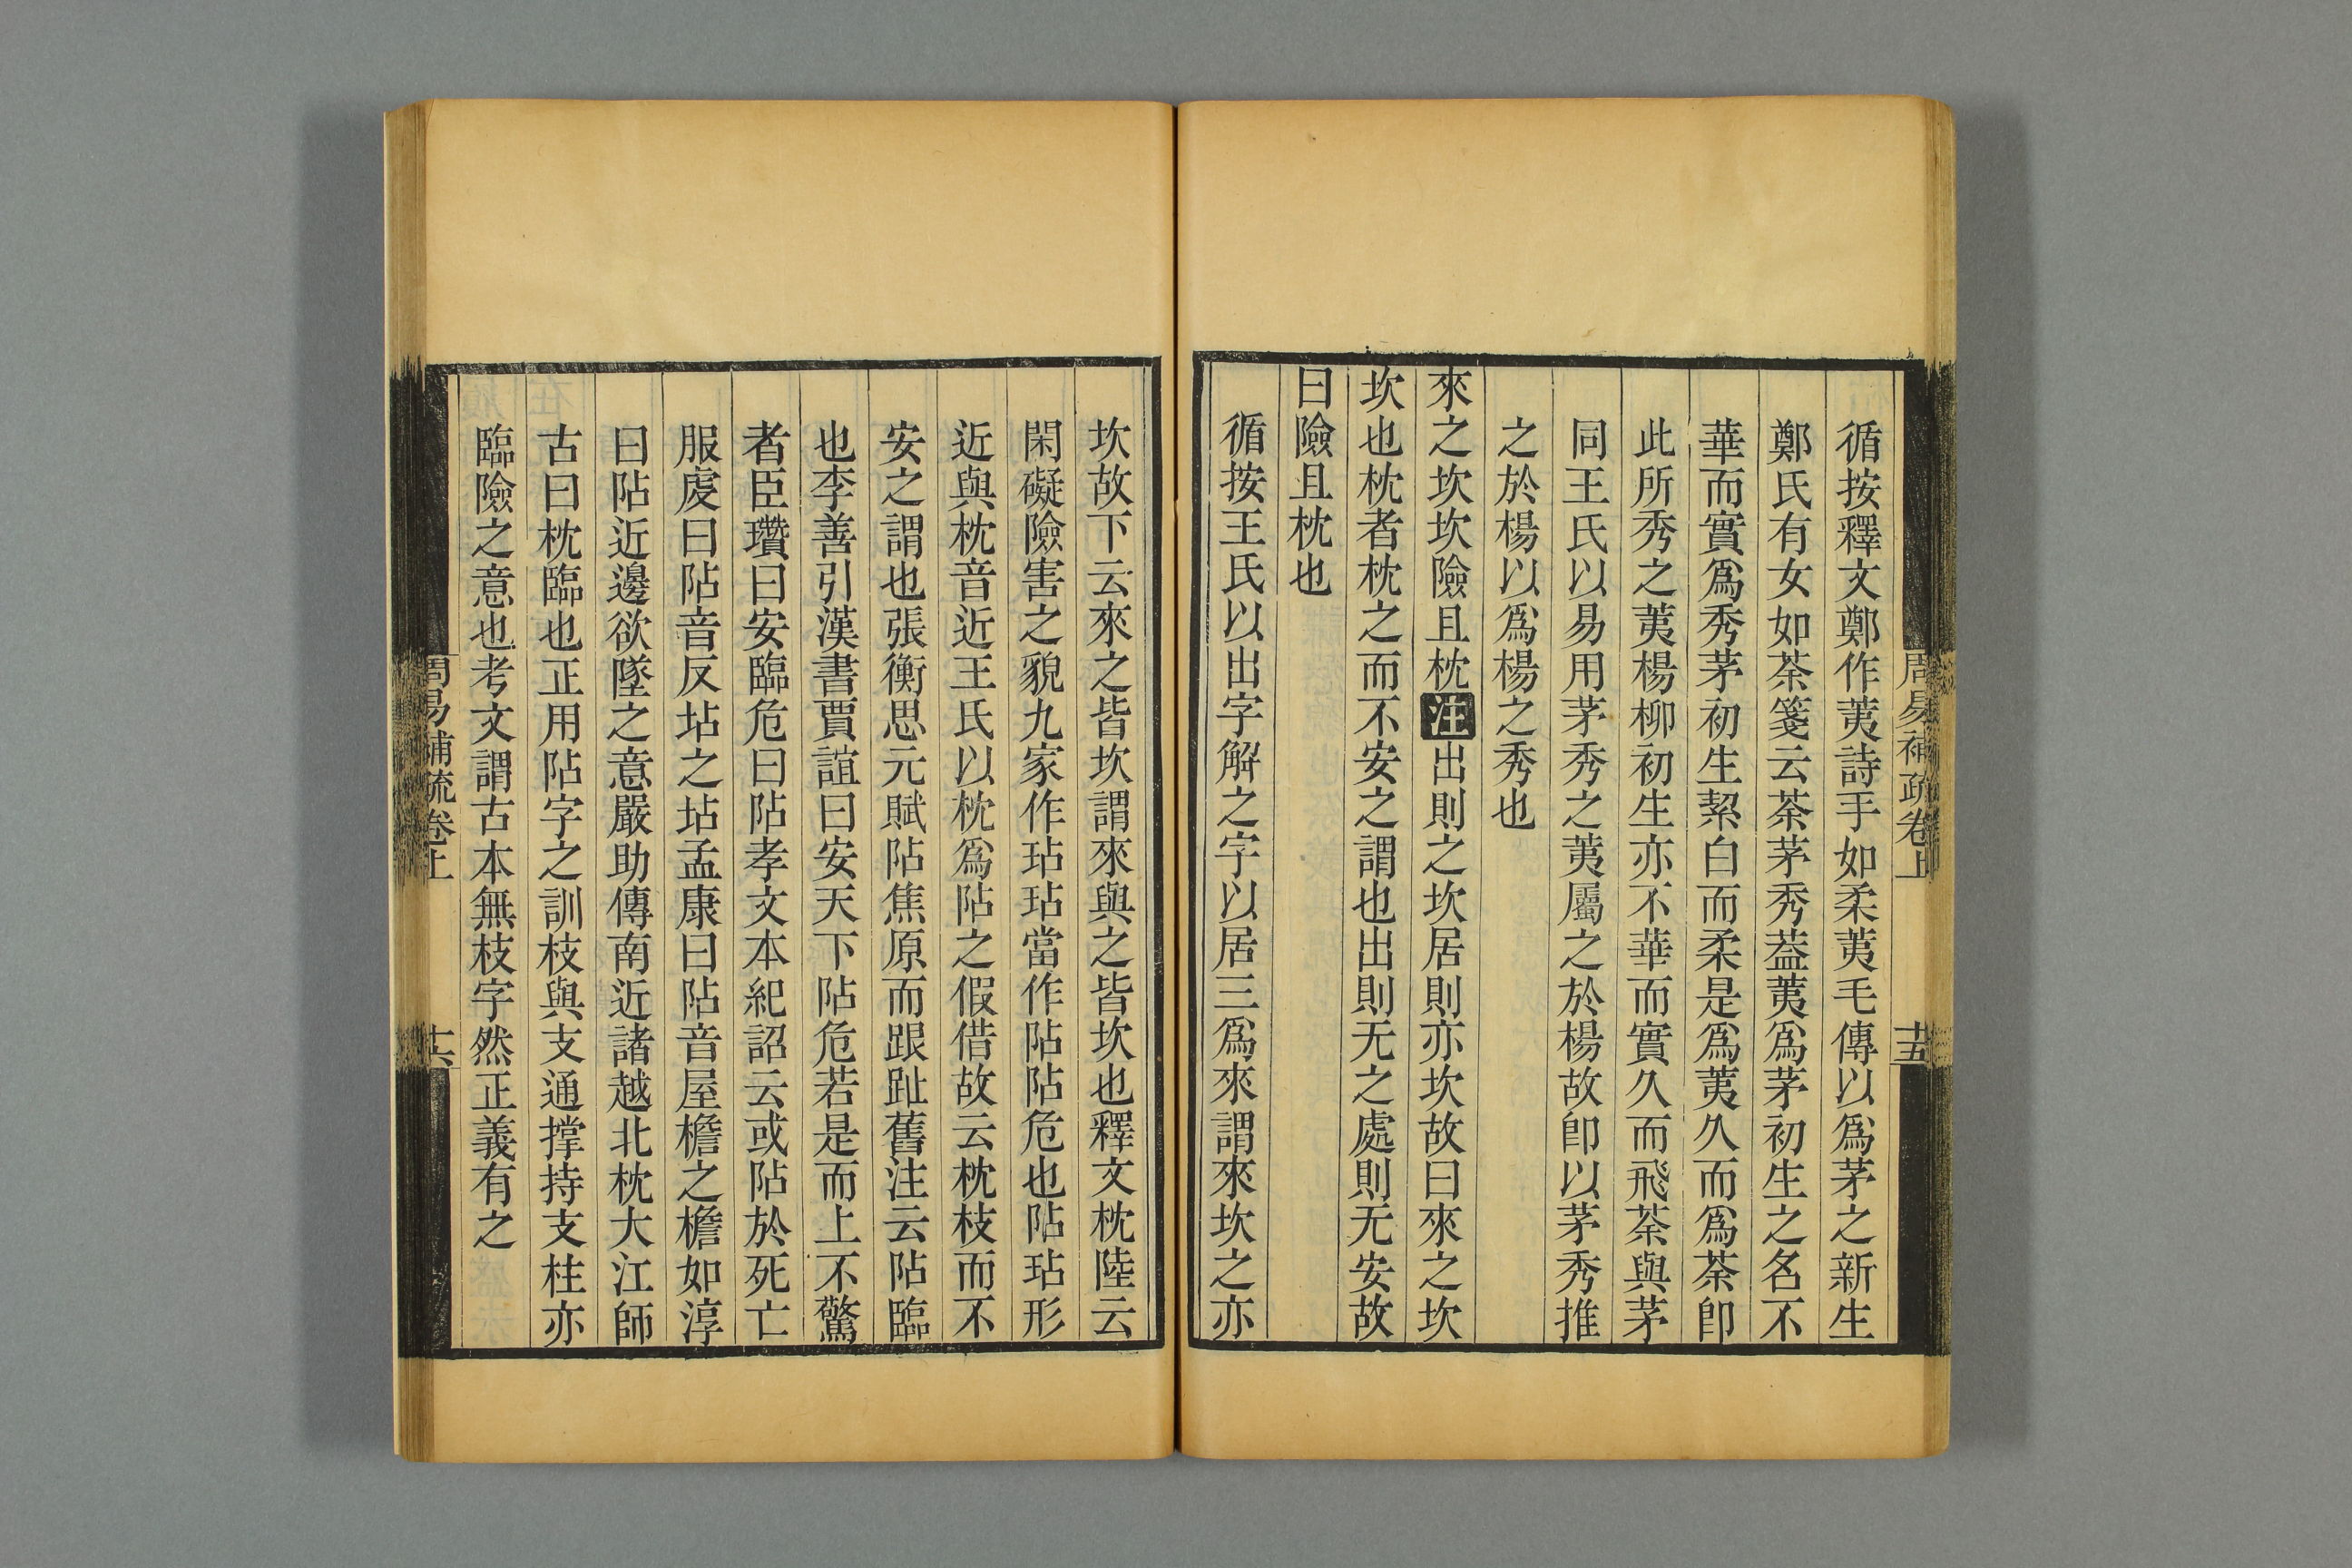 周易補疏卷上
十五
循按釋文鄭作荑詩手如柔荑毛傳以爲茅之新生
鄭氏有女如荼箋云荼茅秀葢荑爲茅初生之名不
華而實爲秀茅初生絜白而柔是爲荑久而爲荼卽
此所秀之荑楊柳初生亦不華而實久而飛荼與茅
同王氏以易用茅秀之荑屬之於楊故卽以茅秀推
之於楊以爲楊之秀也
來之坎坎險且枕注出則之坎居則亦坎故曰來之坎
坎也枕者枕之而不安之謂也出則无之處則无安故
曰險且枕也
循按王氏以出字解之字以居三爲來謂來坎之亦
坎故下云來之皆坎謂來與之皆坎也釋文枕陸云
閑礙險害之貌九家作玷玷當作阽阽危也阽玷形
近與枕音近王氏以枕爲阽之假借故云枕枝而不
安之謂也張衡思元賦阽焦原而跟趾舊注云阽臨
也李善引漢書賈誼曰安天下阽危若是而上不驚
者臣瓚曰安臨危曰阽孝文本紀詔云或阽於死亡
服虔曰阽音反坫之坫孟康曰阽音屋檐之檐如淳
曰阽近邊欲墜之意嚴助傳南近諸越北枕大江師
古曰枕臨也正用阽字之訓枝與支通撑持支柱亦
臨險之意也考文謂古本無枝字然正義有之
周易補疏卷上
十六